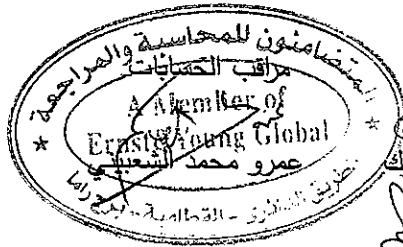 المتضامنون للمحاسبة والمراجعة
مراقب الحسابات
A Member of
Ernst & Young Global
عمرو محمد الشعبيني
الطريق الدائرى - القطامية - برج راما